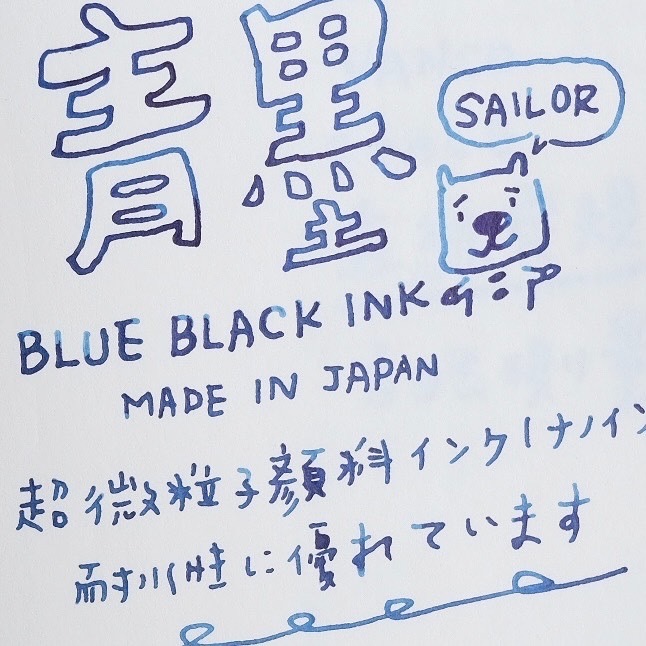 青墨
SAILOR
BLUE BLACK INK
MADE IN JAPAN
超微粒子顔料インク(ナノイン
耐水性に優れています